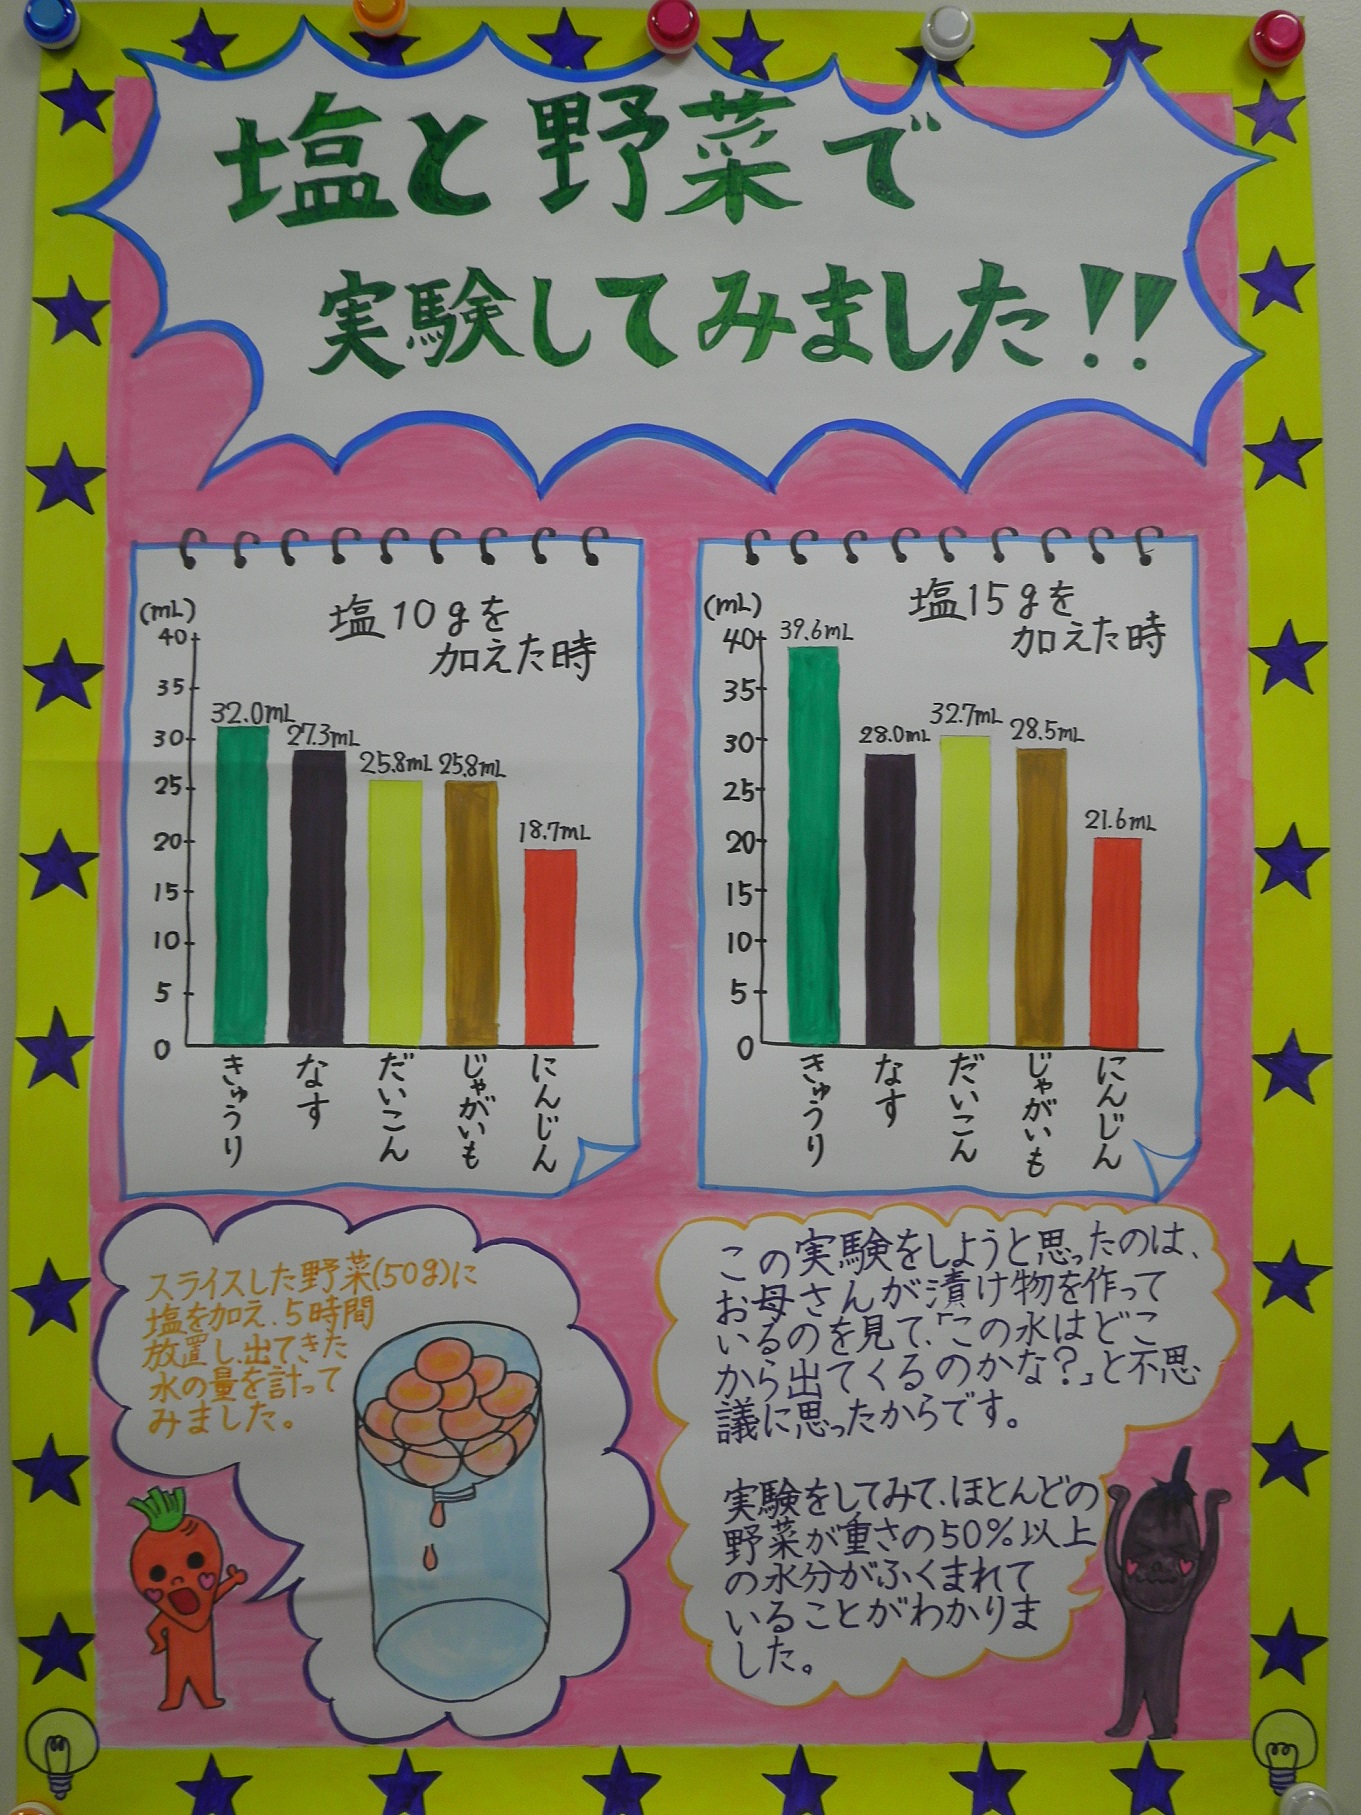 塩と野菜で
実験してみました!!
塩10gを
加えた時
(mL)
40
35
30
25
20
15
10
5
0
32.0mL
27.3mL
25.8mL
25.8mL
18.7mL
きゅうり
なす
だいこん
じゃがいも
にんじん
塩15gを
加えた時
(mL)
40
35
30
25
20
15
10
5
0
39.6mL
28.0mL
32.7mL
28.5mL
21.6mL
きゅうり
なす
だいこん
じゃがいも
にんじん
スライスした野菜(50g)に
塩を加え、5時間
放置し、出てきた
水の量を計って
みました。
この実験をしようと思ったのは、
お母さんが漬け物を作って
いるのを見て、「この水はどこ
から出てくるのかな?」と不思
議に思ったからです。
実験をしてみて、ほとんどの
野菜が重さの50%以上
の水分がふくまれて
いることがわかりま
した。